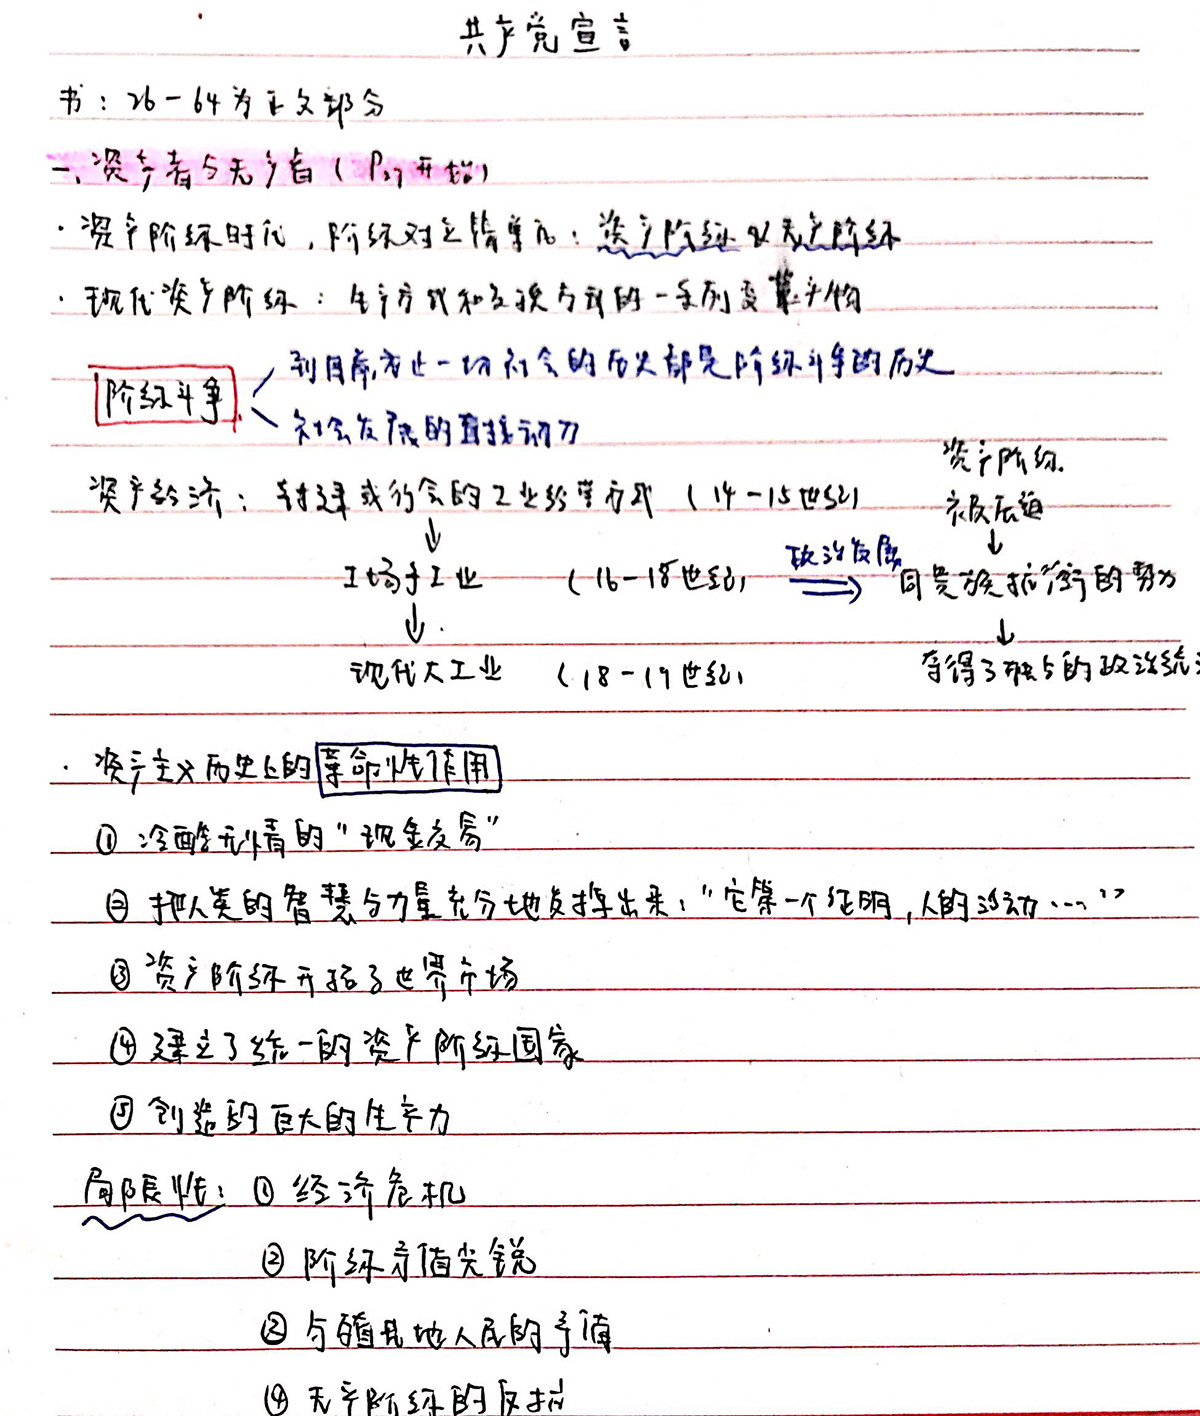 共产党宣言
书：26-64为正文部分
一、资产者与无产者（P27开始）
·资产阶级时代，阶级对立简单化：资产阶级以无产阶级
·现代资产阶级：生产方式和交换方式的一系列变革产物
阶级斗争
到目前为止一切社会的历史都是阶级斗争的历史
社会发展的直接动力
资产阶级
被压迫
↓
资产经济：封建或行会的工业经营方式（14-15世纪）
↓
工场手工业（16-18世纪）
政治发展
同贵族抗衡的势力
↓
↓
现代大工业（18-19世纪）
夺得了独占的政治统治
·资产主义历史上的革命性作用
①冷酷无情的“现金交易”
②把人类的智慧与力量充分地发挥出来：“它第一个证明，人的活动……”
③资产阶级开拓了世界市场
④建立了统一的资产阶级国家
⑤创造的巨大的生产力
局限性：①经济危机
②阶级矛盾尖锐
②与殖民地人民的矛盾
④无产阶级的反抗